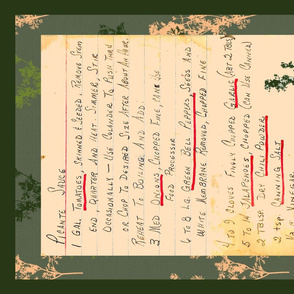 PICANTE SAUCE
1 GAL. TOMATOES SKINNED & SEEDED. REMOVE STEM
END QUARTER AND HEAT. SIMMER, STIR
OCCASIONALLY - USE COLANDER TO PUSH THRU
OR CHOP TO DESIRED SIZE AFTER ABOUT AN HOUR.
REHEAT TO BOILING AND ADD
3 MED ONIONS, CHOPPED FINE, USE
FOOD PROCESSOR
6 TO 8 LG. GREEN BELL PEPPERS SEEDS AND
WHITE MEMBRANE REMOVED, CHOPPED FINE
4 TO 9 CLOVES FINELY CHOPPED GARLIC (ABT 2 TBLS)
5 TO 14 JALAPENOES, CHOPPED (CAN USE CANNED)
2 TBLSP DRY CHILI POWDER
2 TBSP CANNING SALT
VINEGAR